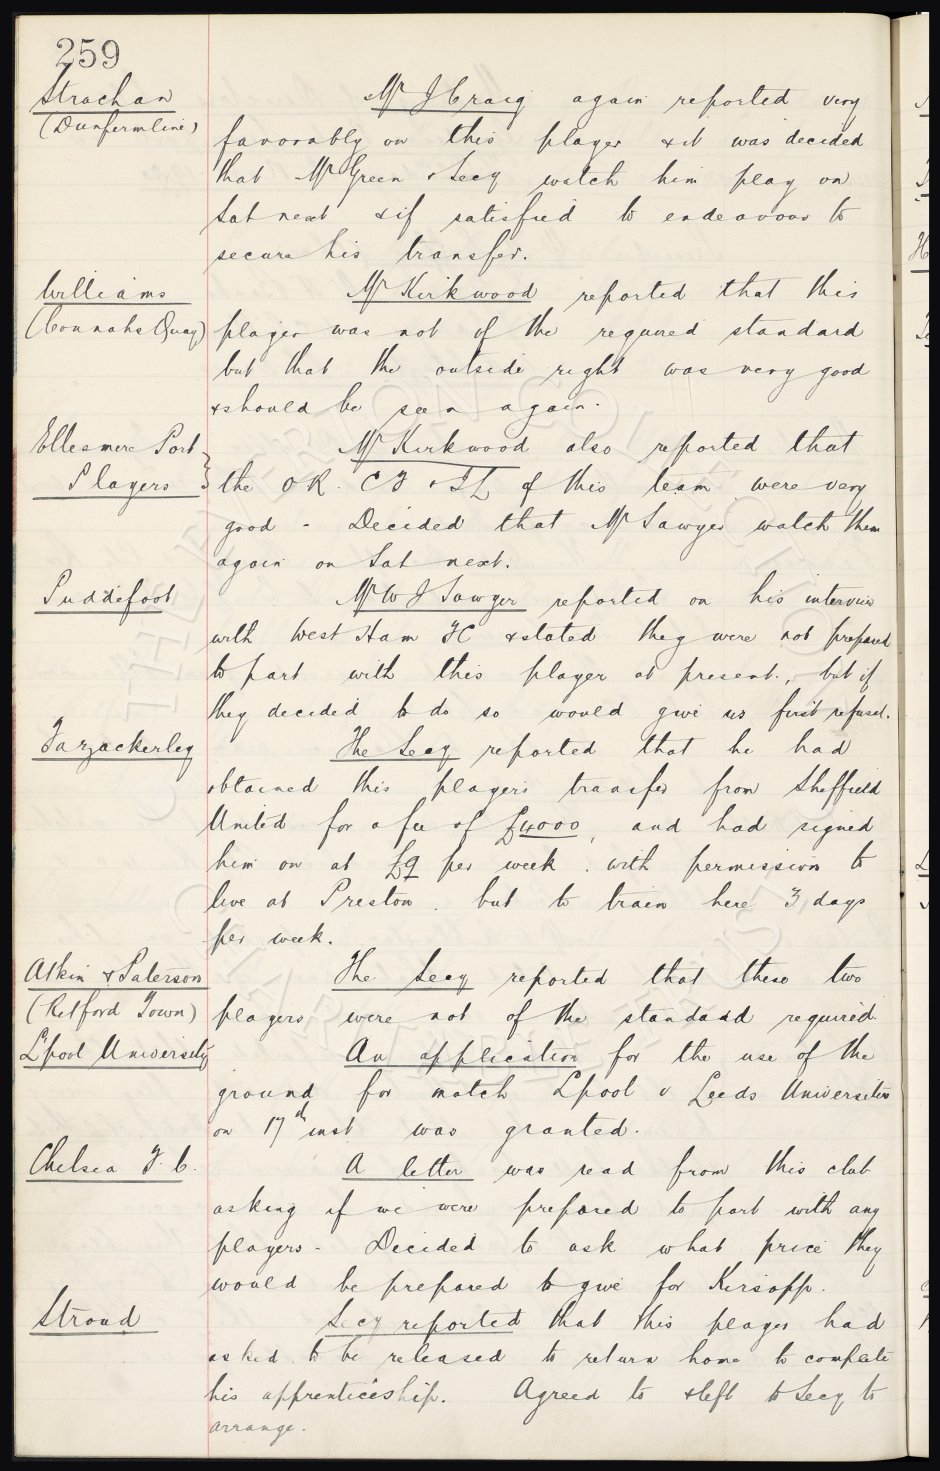 259
Strachan
(Dunfermline)
Mr J Craig again reported very
favorably on this player & it was decided
that Mr Green & Secy watch him play on
Sat next & if satisfied to endeavour to
secure his transfer.
Williams
(Connahs Quay)
Mr Kirkwood reported that this
player was not of the required standard
but that the outside right was very good
& should be seen again.
Ellesmere Port
Players
Mr Kirkwood also reported that
the OR. CF & IL of this team were very
good - Decided that Mr Sawyer watch them
again on Sat next.
Puddefoot
Mr W J Sawyer reported on his interview
with West Ham FC & stated they were not prepared
to part with this player at present, but if
they decided to do so would give us first refusal.
Fazackerley
The Secy reported that he had
obtained this players transfer from Sheffield
United for a fee of £4000, and had signed
him on at £9 per week. with permission to
live at Preston. but to train here 3 days
per week.
Atkin & Paterson
(Retford Town)
The Secy reported that these two
players were not of the standadd required.
L'pool University
An application for the use of the
ground for match Lpool v Leeds Universities
on 17th inst was granted.
Chelsea F.C.
A letter was read from this club
asking if we were prepared to part with any
players - Decided to ask what price they
would be prepared to give for Kirsopp.
Stroud
Secy reported that this player had
asked to be released to return home to complete
his apprenticeship. Agreed to & left to Secy to
arrange.